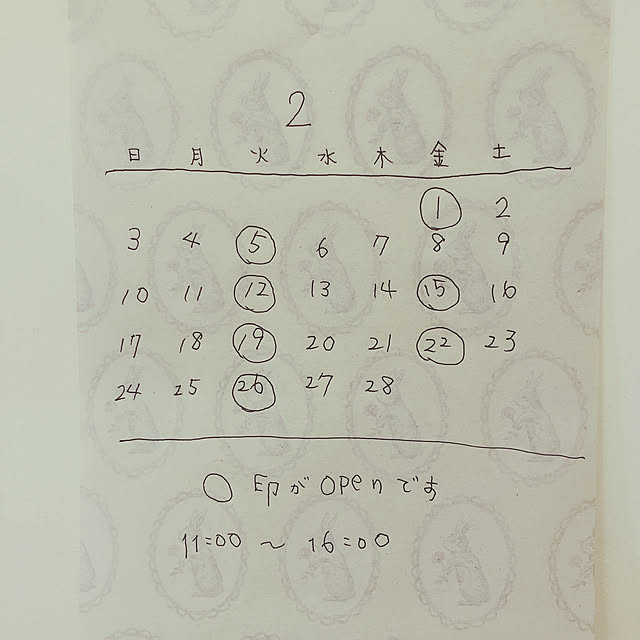 2
日 月 火 水 木 金 土
1 2
3 4 5 6 7 8 9
10 11 12 13 14 15 16
17 18 19 20 21 22 23
24 25 26 27 28
○ 印が OPen です
11:00 〜 16:00